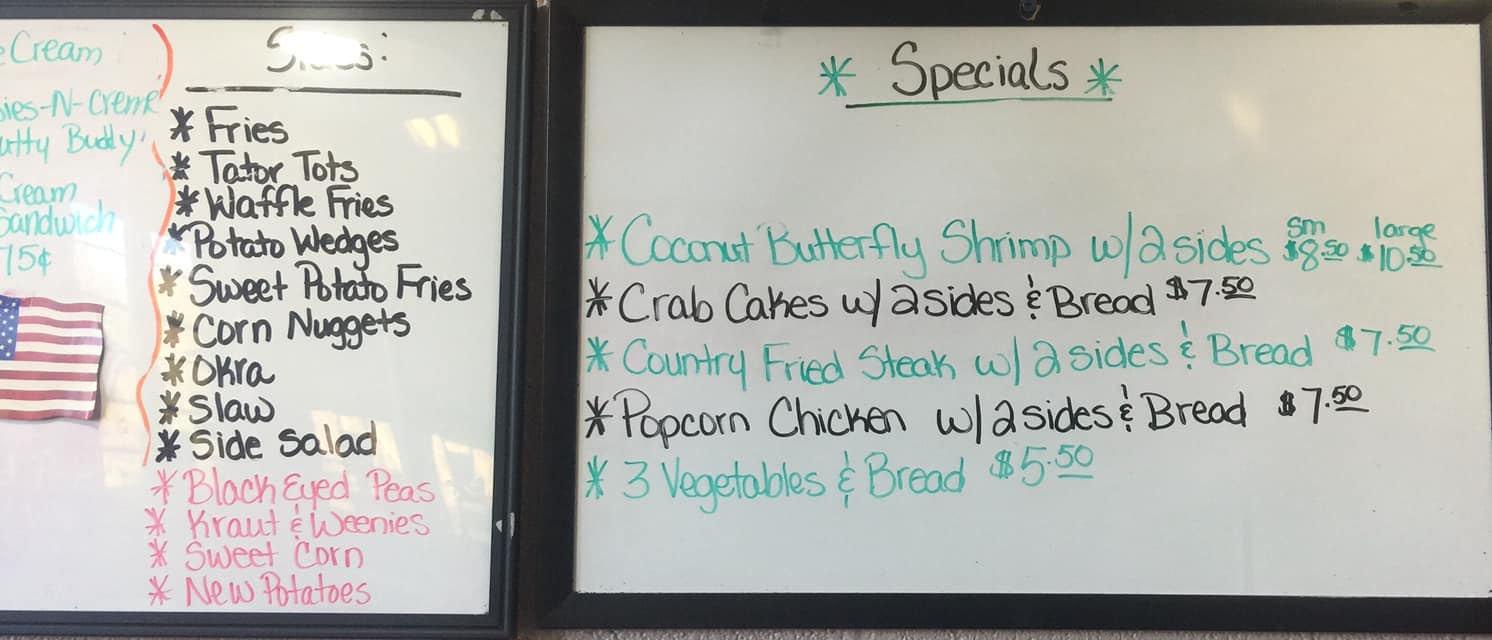 Cream
-N-Creme
Buddy
Cream
Sandwich
75¢
Sides:
* Fries
* Tator Tots
* Waffle Fries
* Potato Wedges
* Sweet Potato Fries
* Corn Nuggets
* Okra
* Slaw
* Side Salad
* Black Eyed Peas
* Kraut & Weenies
* Sweet Corn
* New Potatoes
* Specials *
* Coconut Butterfly Shrimp w/2 sides sm $8.50 large $10.50
* Crab Cakes w/2 sides & Bread $7.50
* Country Fried Steak w/2 sides & Bread $7.50
* Popcorn Chicken w/2 sides & Bread $7.50
* 3 Vegetables & Bread $5.50